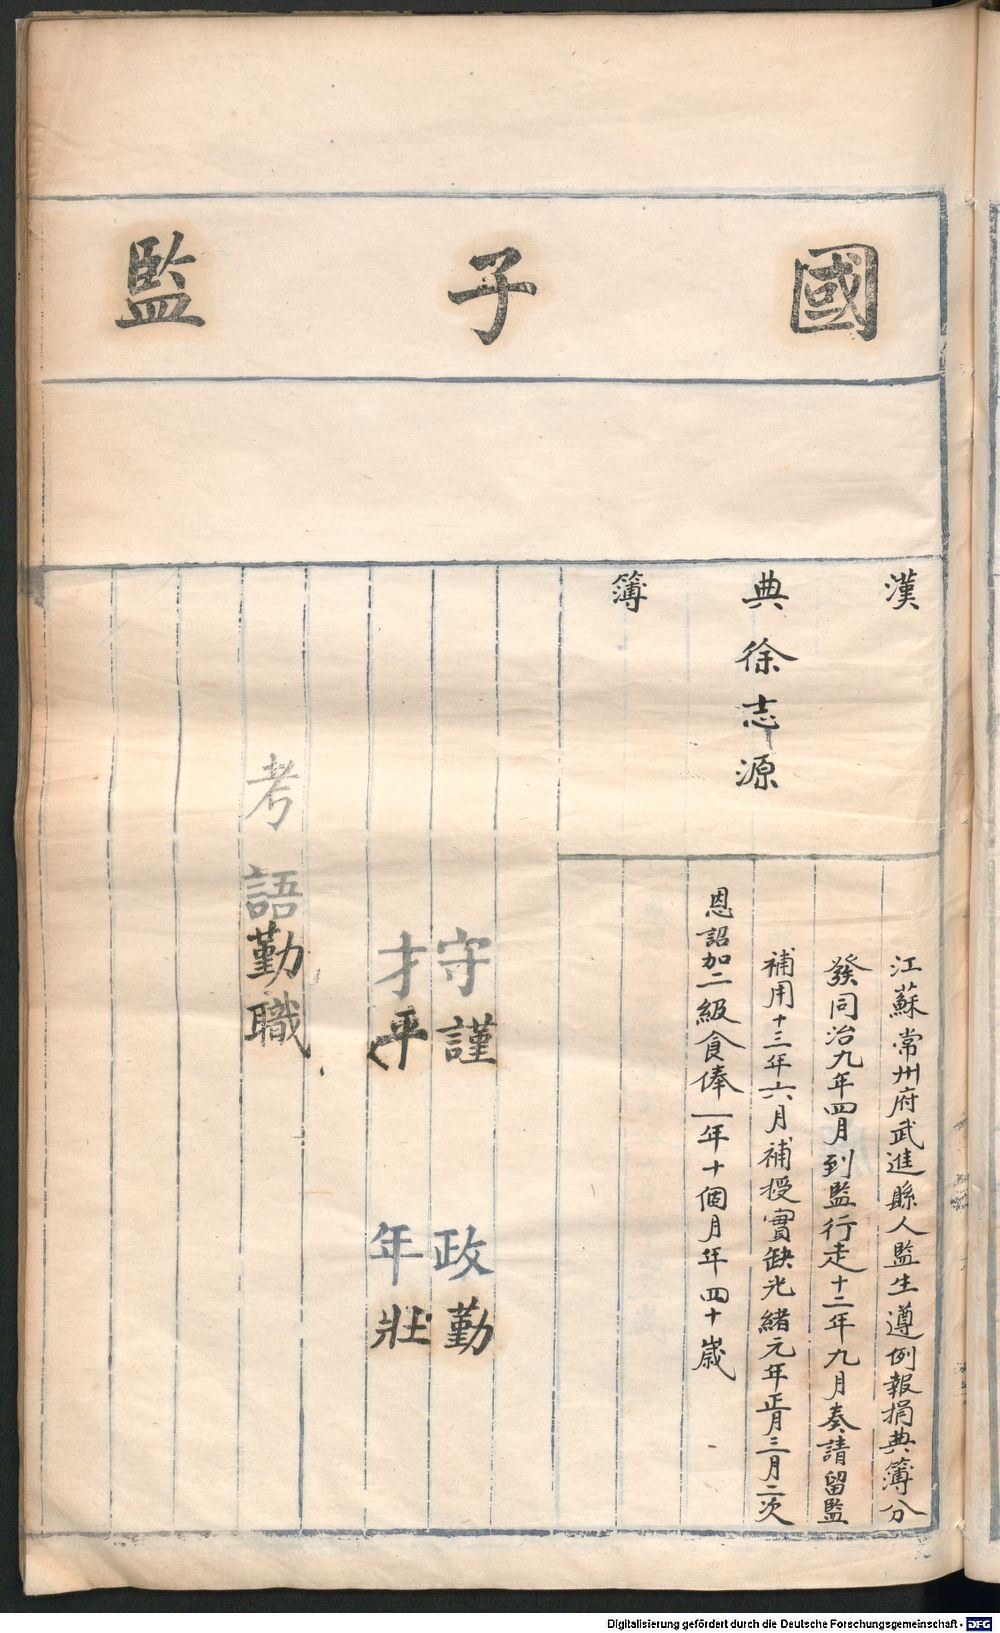 國子監
漢典簿
徐志源
江蘇常州府武進縣人監生遵例報捐典簿分
發同治九年四月到監行走十二年九月奏請留監
補用十三年六月補授實缺光緒元年正月三月二次
恩詔加二級食俸一年十個月年四十歲
守謹 政勤
才平 年壯
考語勤職
Digitalisierung gefördert durch die Deutsche Forschungsgemeinschaft - DFG